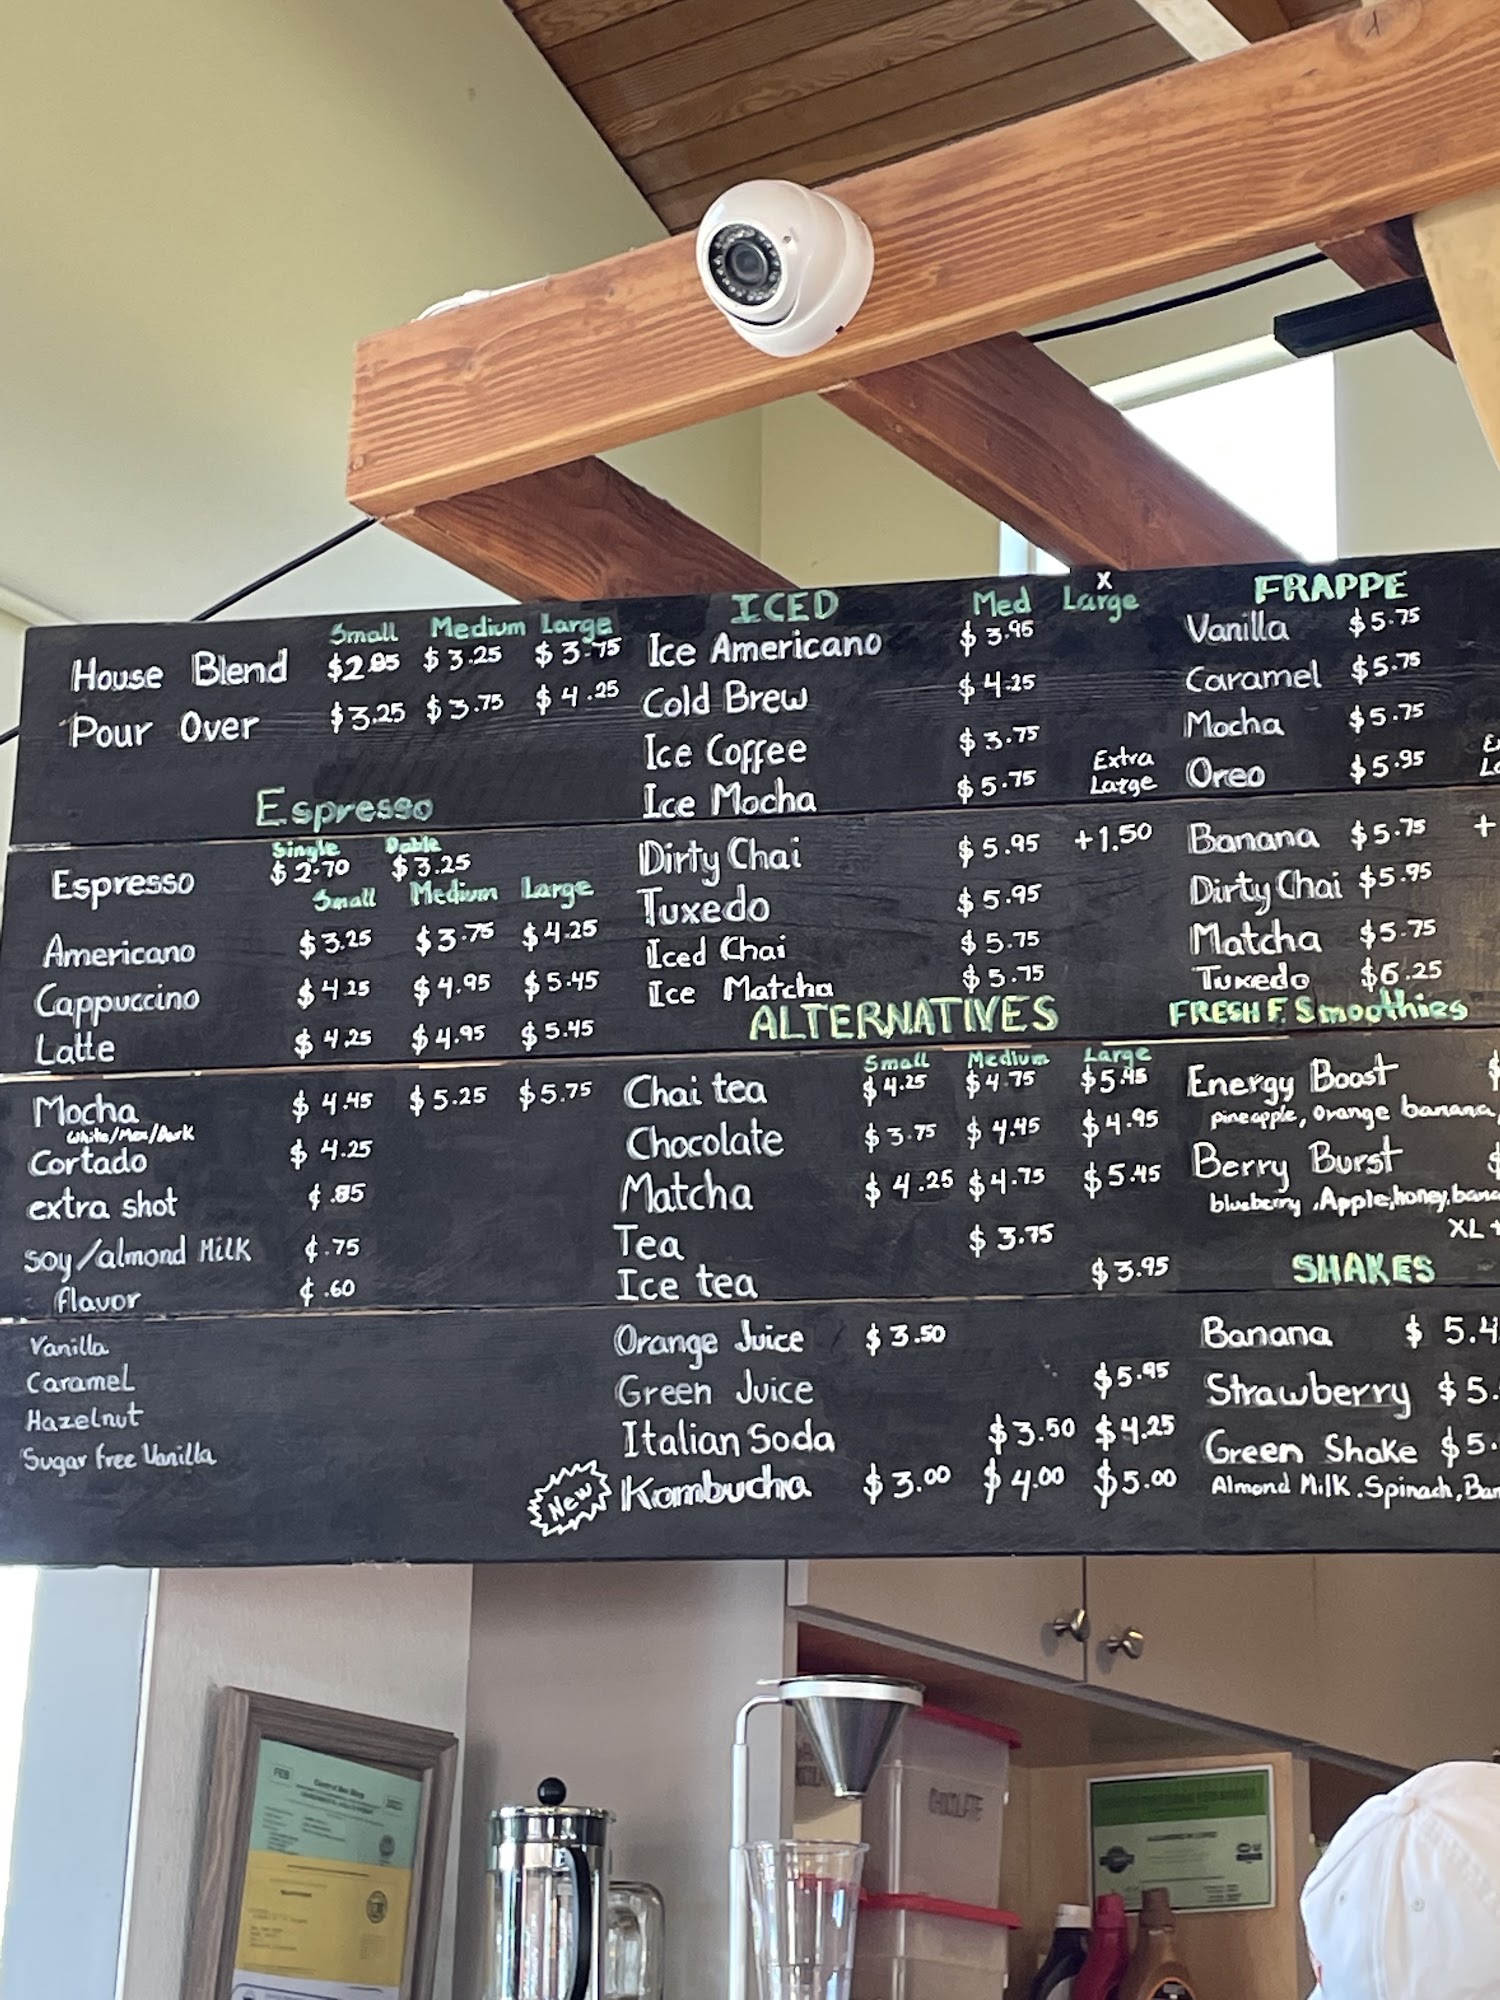 Small Medium Large
House Blend $2.85 $3.25 $3.75
Pour Over $3.25 $3.75 $4.25
Espresso
Single Doble
Espresso $2.70 $3.25
Small Medium Large
Americano $3.25 $3.75 $4.25
Cappuccino $4.25 $4.95 $5.45
Latte $4.25 $4.95 $5.45
Mocha $4.45 $5.25 $5.75
White/Mex/Dark
Cortado $4.25
extra shot ¢.85
soy/almond Milk ¢.75
flavor ¢.60
Vanilla
Caramel
Hazelnut
Sugar free Vanilla
ICED Med X Large
Ice Americano $3.95
Cold Brew $4.25
Ice Coffee $3.75
Ice Mocha $5.75 Extra Large
Dirty Chai $5.95 +1.50
Tuxedo $5.95
Iced Chai $5.75
Ice Matcha $5.75
ALTERNATIVES
Small Medium Large
Chai tea $4.25 $4.75 $5.45
Chocolate $3.75 $4.45 $4.95
Matcha $4.25 $4.75 $5.45
Tea $3.75
Ice tea $3.95
Orange Juice $3.50
Green Juice $5.95
Italian Soda $3.50 $4.25
New Kombucha $3.00 $4.00 $5.00
FRAPPE
Vanilla $5.75
Caramel $5.75
Mocha $5.75
Oreo $5.95
Banana $5.75 +
Dirty Chai $5.95
Matcha $5.75
Tuxedo $6.25
FRESH F. Smoothies
Energy Boost $
pineapple, orange banana,
Berry Burst $
blueberry, Apple, honey, bana
XL +
SHAKES
Banana $5.4
Strawberry $5.
Green Shake $5.
Almond Milk, Spinach, Ban
CHOCOLATE